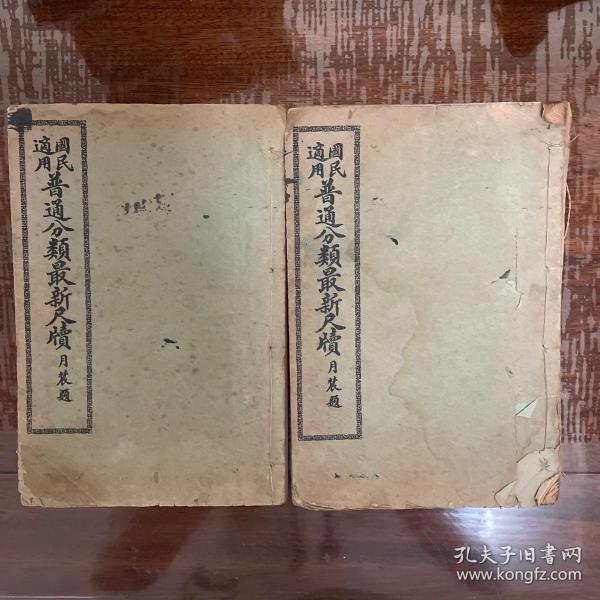 國民
適用
普通分類最新尺牘
月裳題
國民
適用
普通分類最新尺牘
月裳題
孔夫子旧书网
www.kongfz.com